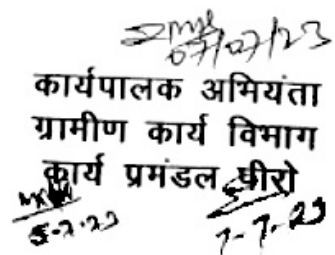 07/07/23
कार्यपालक अभियंता
ग्रामीण कार्य विभाग
कार्य प्रमंडल पीरो
5-7-23
7-7-23